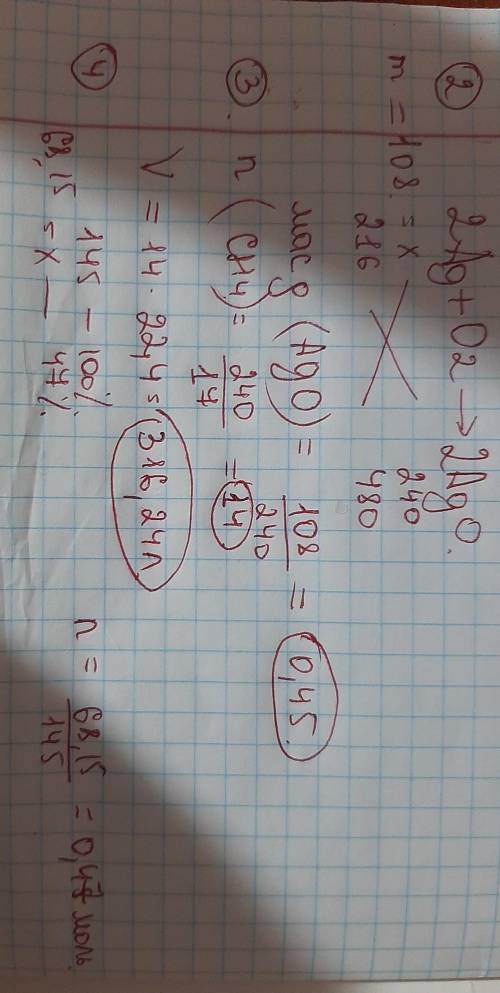 ② 2Ag + O2 → 2AgO.
240
m = 108. = x 480
216
мас д (AgO) = 108/240 = 0,45.
③ n (CH4) = 240/17 = 14
V = 14 · 22,4 = 316,24л
④ 145 — 100%
68,15 = x — 47%
n = 68,15/145 = 0,47 моль